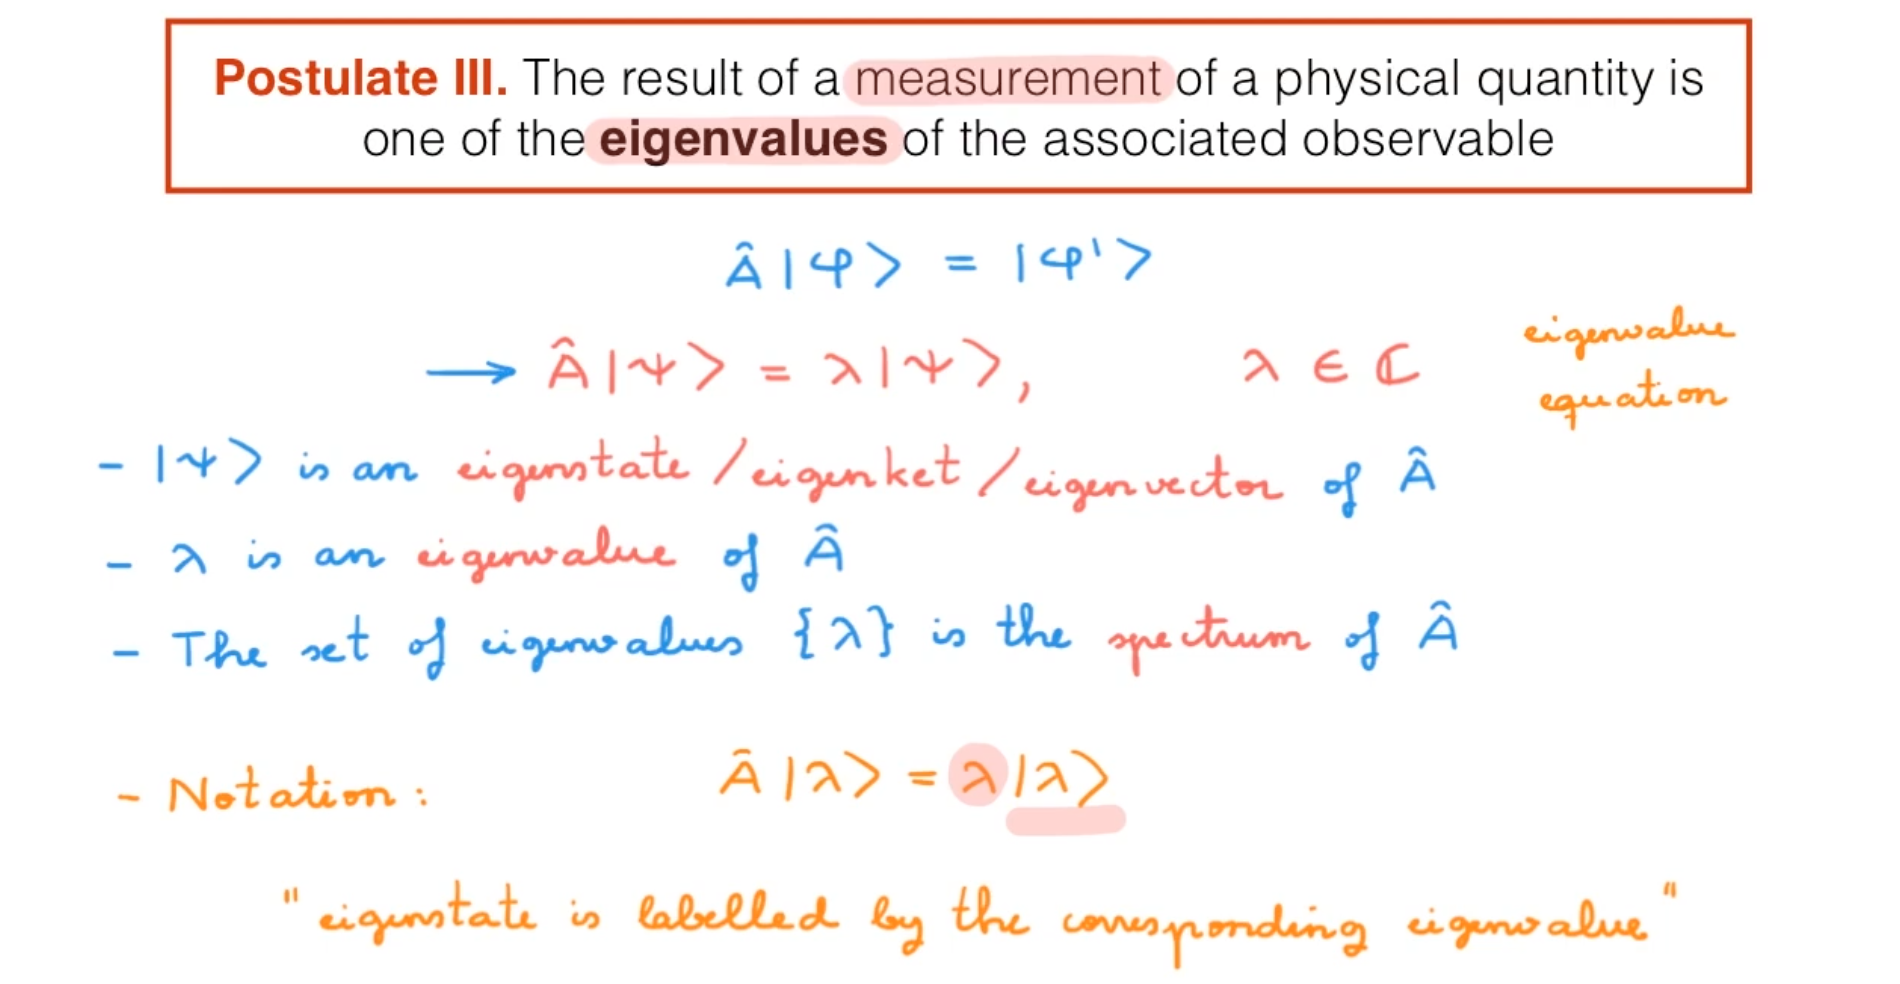 Postulate III. The result of a measurement of a physical quantity is
one of the eigenvalues of the associated observable
Â|φ⟩ = |φ'⟩
→ Â|ψ⟩ = λ|ψ⟩, λ ∈ ℂ
eigenvalue
equation
- |ψ⟩ is an eigenstate / eigenket / eigenvector of Â
- λ is an eigenvalue of Â
- The set of eigenvalues {λ} is the spectrum of Â
- Notation: Â|λ⟩ = λ|λ⟩
"eigenstate is labelled by the corresponding eigenvalue"